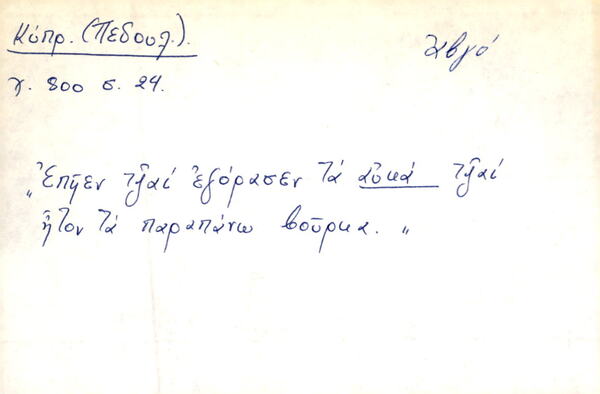 Κύπρ. (Πεδουλ.).
ἀβγό
χ. 800 σ. 24.
„Ἐπῆεν τζ̌αί ἐγόρασεν τά αὐκά τζ̌αί
ἦτον τά παραπάνω βοῦρκα.„